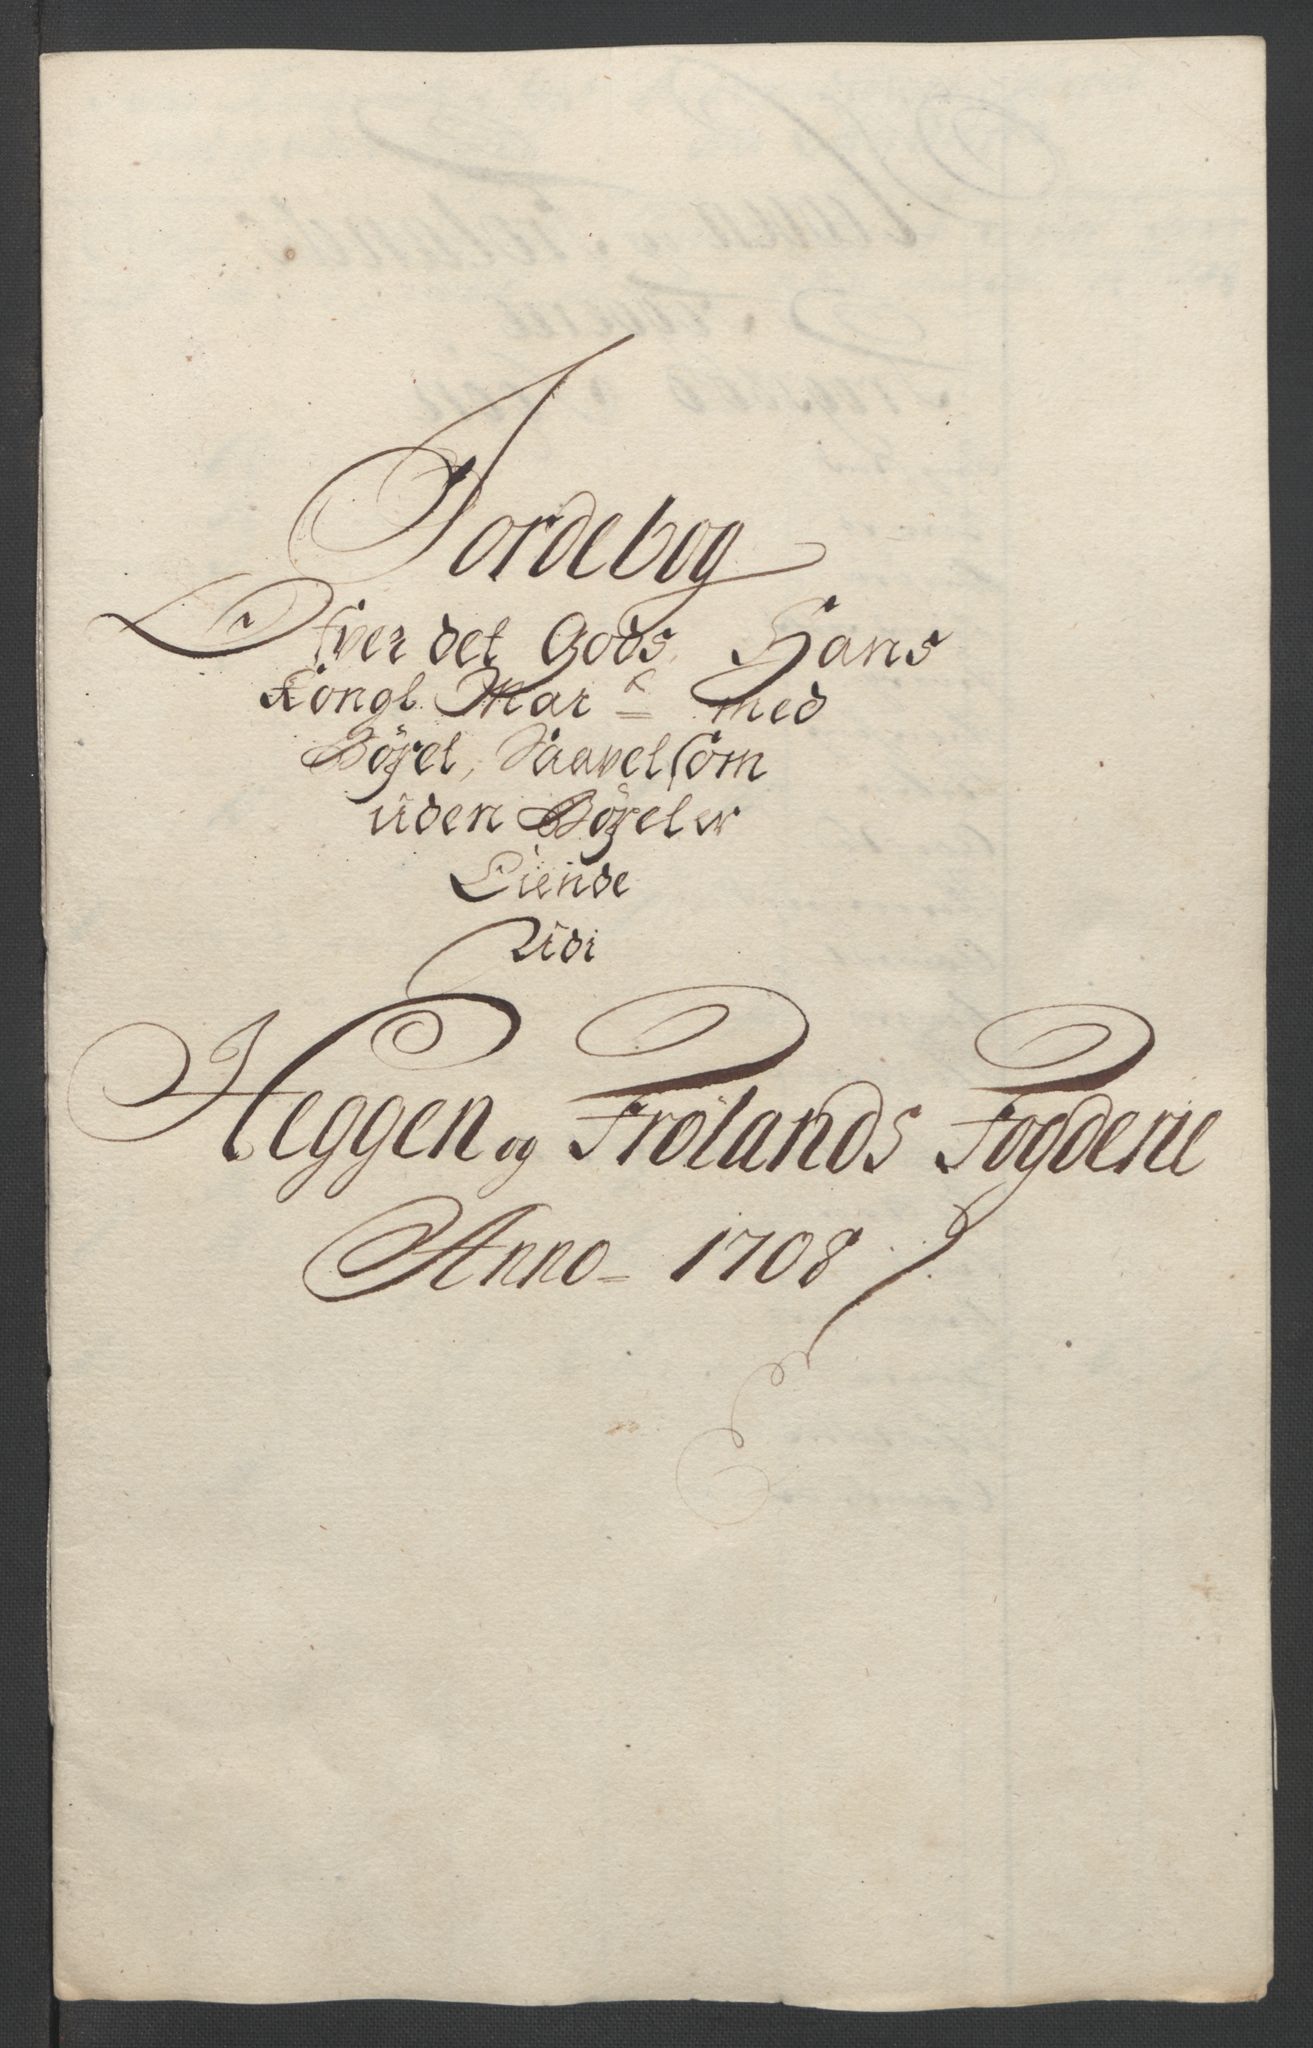 Jordebog
Ofver det Gods, Hans
Kongl. Maÿ.t med
Bøxel, Saavelsom
uden Bøxel er
Eiende
Udi
Heggen og Frølands Fogderie
Anno 1708